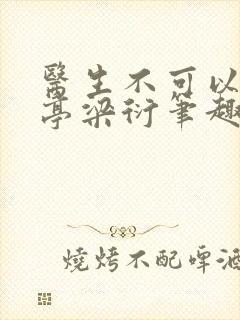 醫生不可以
亭梁衍筆趣
燒烤不配啤酒